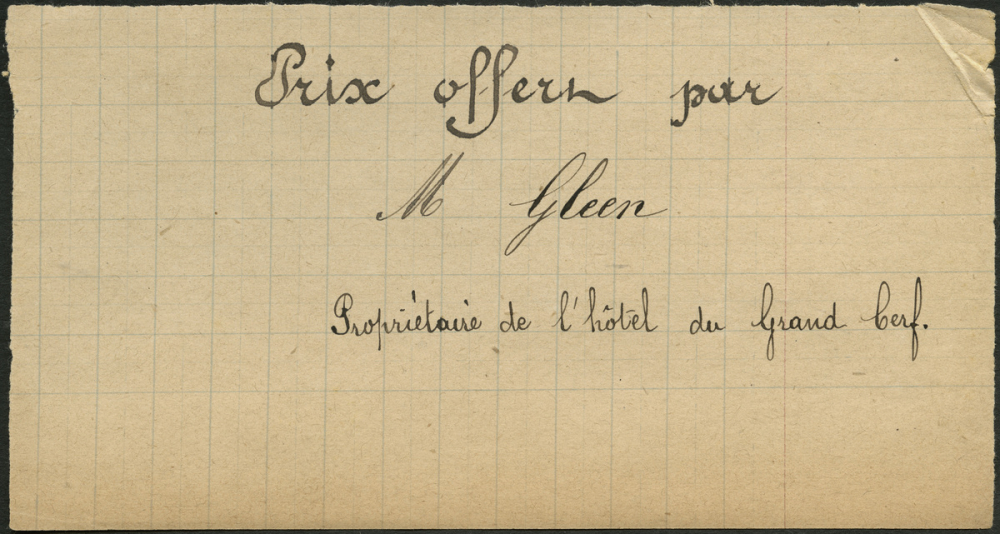 Prix offert par
M Gleen
Propriétaire de l'hôtel du Grand Cerf.